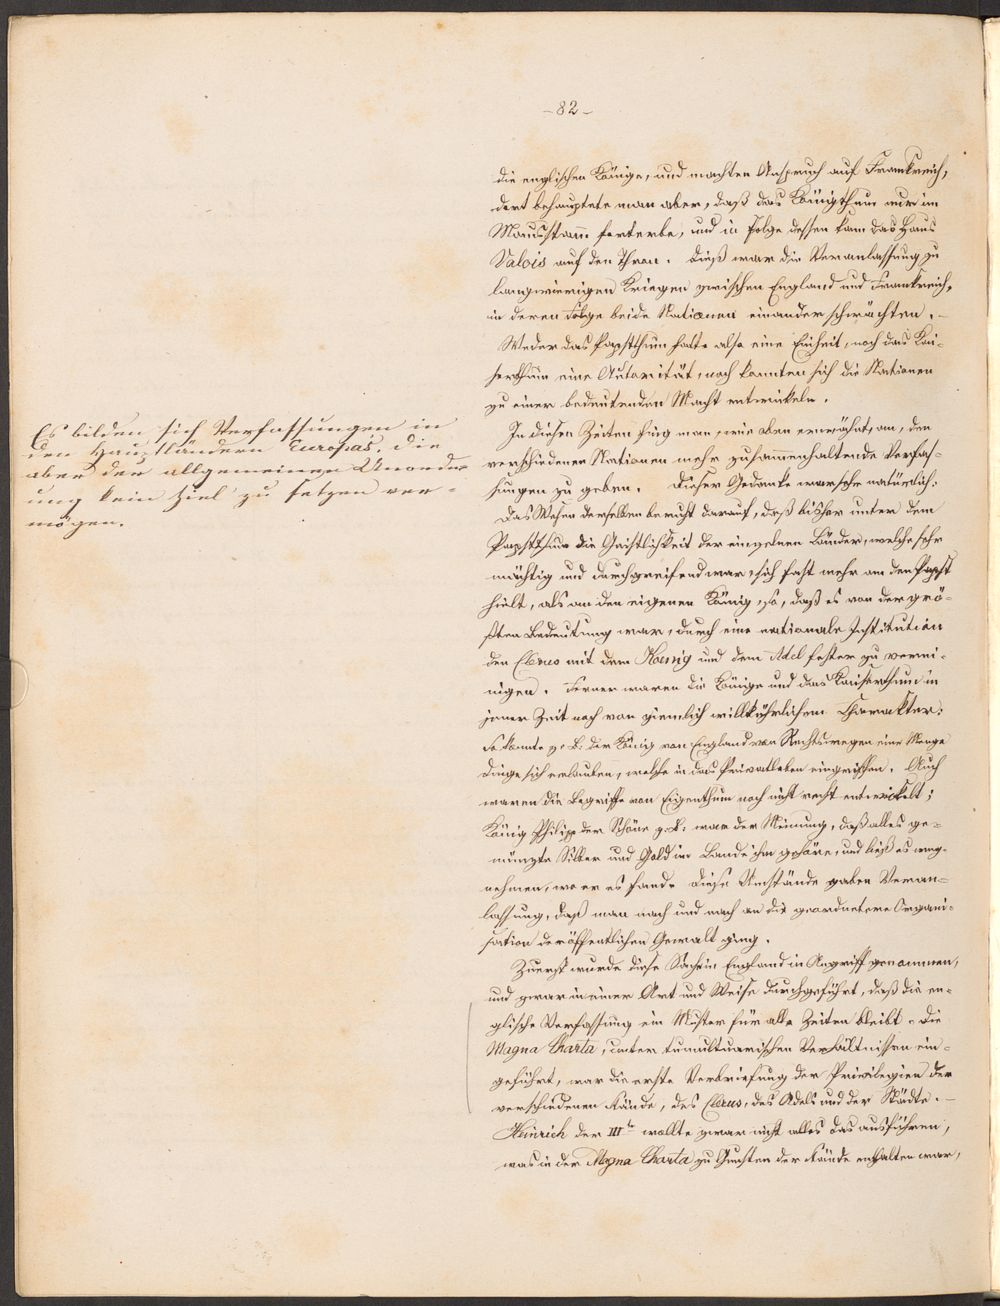 - 82 -
die englischen Könige, und machten Anspruch auf Frankreich,
dort behauptete man aber, daß das Königthum nur im
Mannsstamm forterbe, und in Folge dessen kam das Haus
Valois auf den Thron. Dieß war die Veranlassung zu
langwierigen Kriegen zwischen England und Frankreich,
in deren Folge beide Nationen einander schwächten. -
Weder das Papstthum hatte also eine Einheit, noch das Kai-
serthum eine Autorität, noch konnten sich die Nationen
zu einer bedeutenden Macht entwickeln.
Es bilden sich Verfassungen in
den Hauptländern Europas, die
aber der allgemeinen Unord-
ung kein Ziel zu setzen ver-
mögen.
In diesen Zeiten fing man, wie oben erwähnt, an, den
verschiedenen Nationen mehr zusammenhaltende Verfas-
sungen zu geben. Dieser Gedanke war sehr natürlich:
Das Wesen derselben beruht darauf, daß bisher unter dem
Papstthum die Geistlichkeit der einzelnen Länder, welche sehr
mächtig und durchgreifend war, sich fast mehr an den Papst
hielt, als an den eigenen König, so, daß es von der grö-
ßten Bedeutung war, durch eine nationale Institution
den Clerus mit dem Koenig und dem Adel fester zu verei-
nigen. Ferner waren die Könige und das Kaiserthum in
jener Zeit noch von ziemlich willkührlichem Charakter:
So konnte z. B. der König von England von Rechtswegen eine Menge
Dinge sich erlauben, welche in das Privatleben eingriffen. Auch
waren die Begriffe von Eigenthum noch nicht recht entwickelt;
König Philipp der Schöne z. B. war der Meinung, daß alles ge-
münzte Silber und Gold im Lande ihm gehöre, und ließ es weg-
nehmen, wo er es fand. Diese Umstände gaben Veran-
lassung, daß man nach und nach an die geordnetere Organi-
sation der öffentlichen Gewalt ging.
Zuerst wurde diese Sache in England in Angriff genommen,
und zwar in einer Art und Weise durchgeführt, daß die en-
glische Verfassung ein Muster für alle Zeiten bleibt. Die
Magna Charta, unter tumultuarischen Verhältnissen ein-
geführt, war die erste Verbriefung der Privilegien der
verschiedenen Stände, des Clerus, des Adels und der Städte. -
Heinrich der IIIte wollte zwar nicht alles das ausführen,
was in der Magna Charta zu Gunsten der Stände enthalten war,